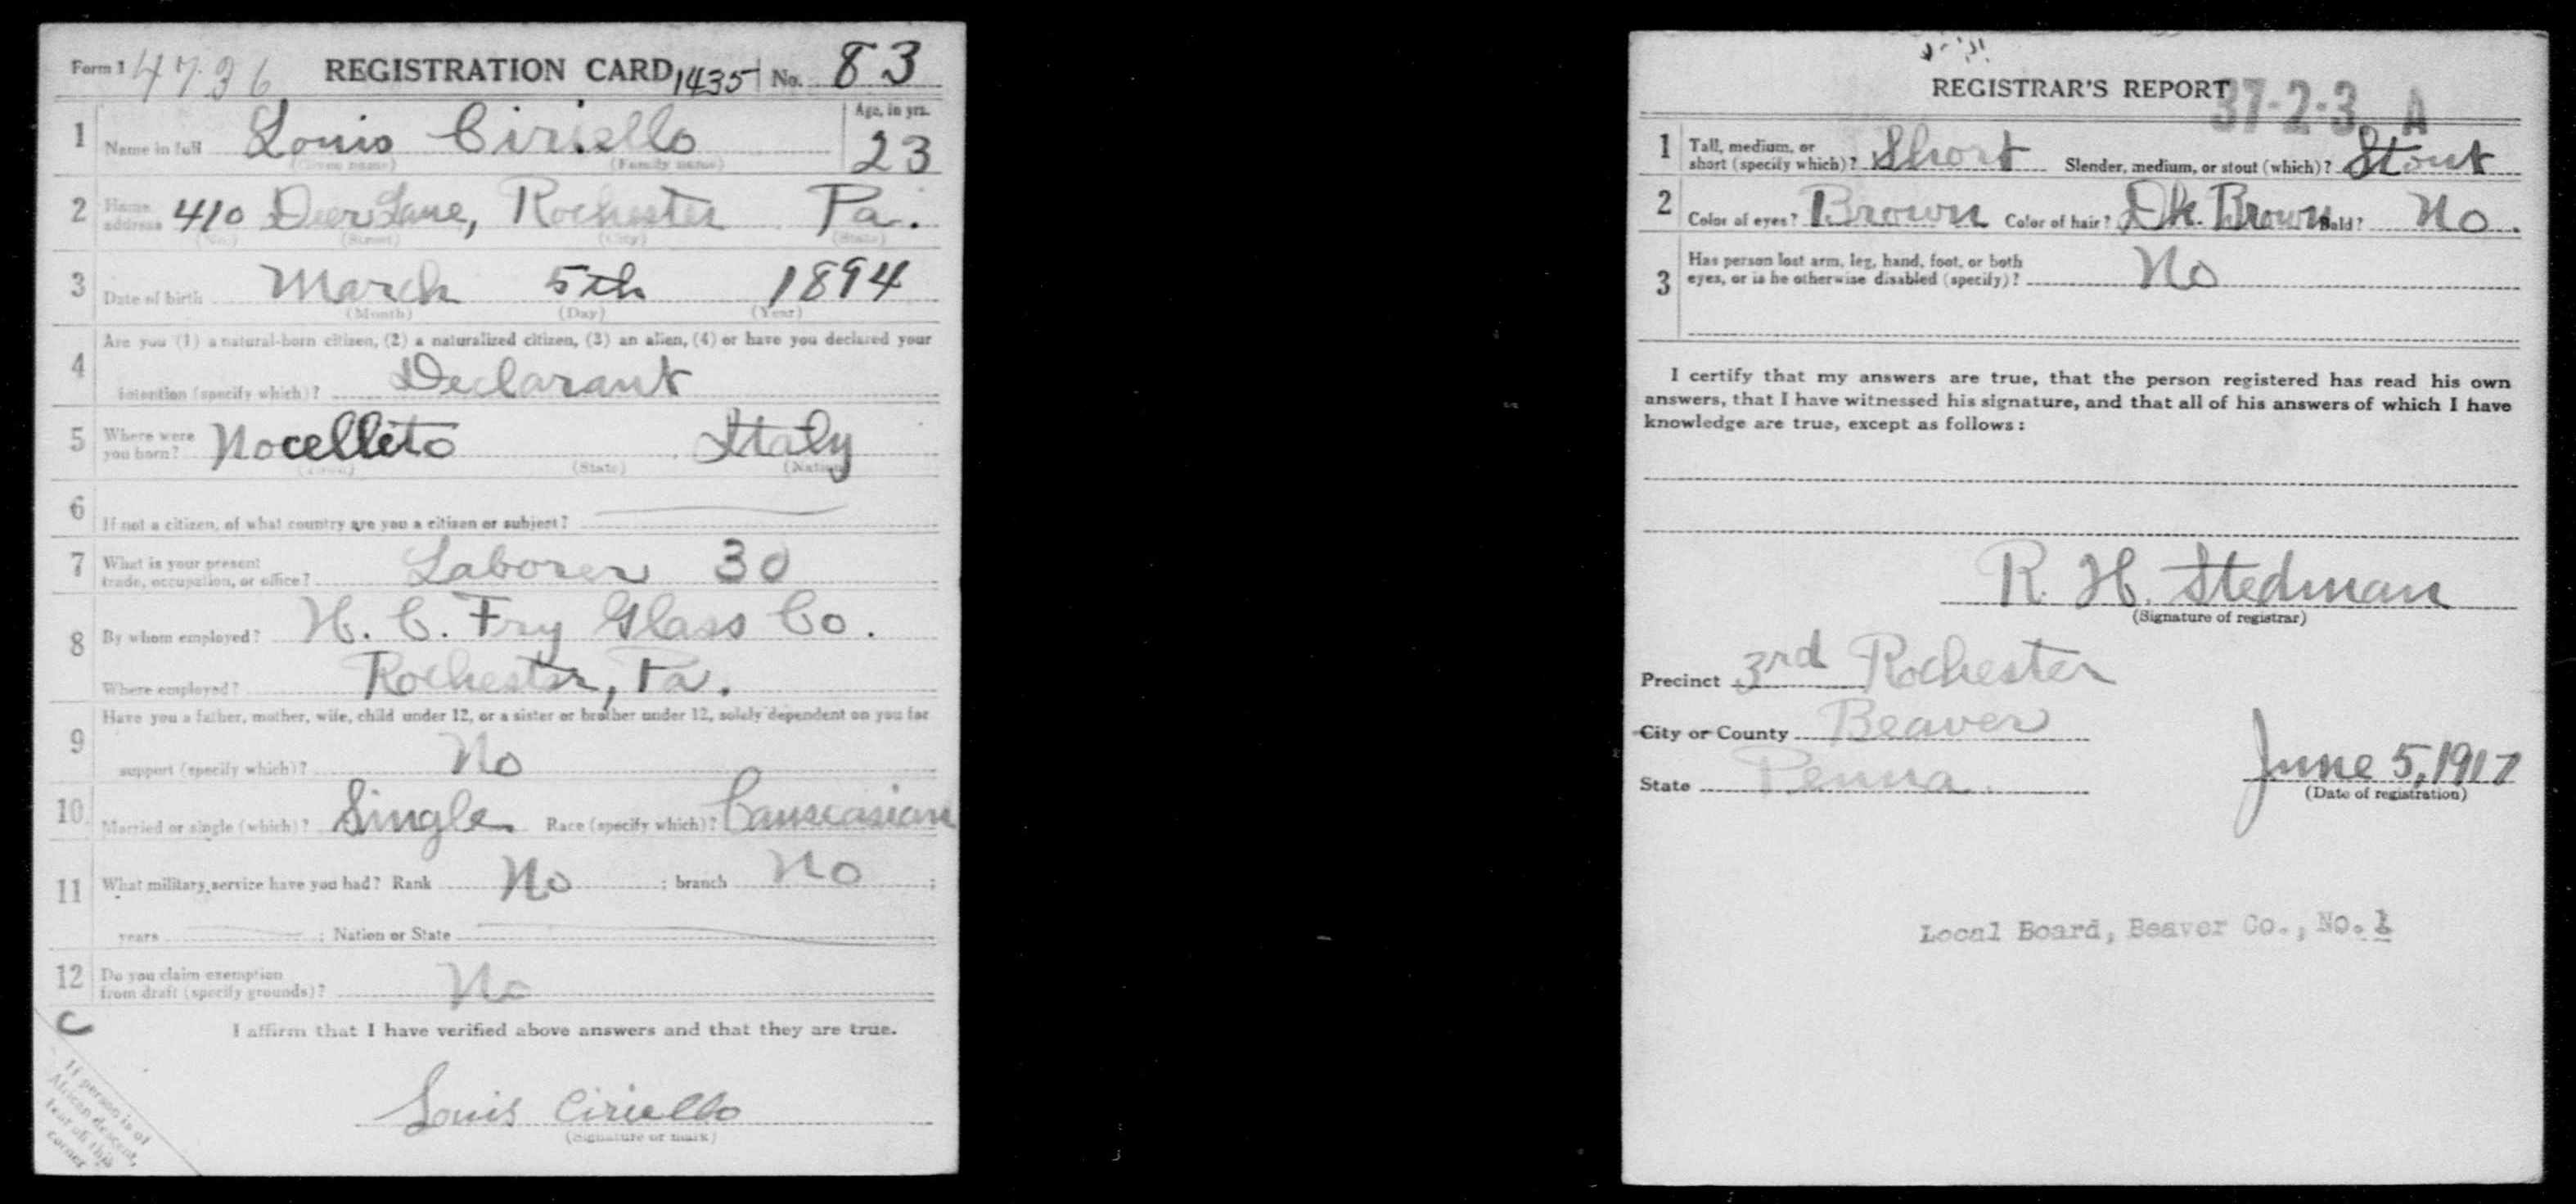 Form 1 4736 REGISTRATION CARD 1435 No. 83
1 Name in full Louis Ciriello Age, in yrs. 23
(Given name) (Family name)
2 Home address 410 Deer Lane, Rochester Pa.
(No.) (Street) (City) (State)
3 Date of birth March 5th 1894
(Month) (Day) (Year)
4 Are you (1) a natural-born citizen, (2) a naturalized citizen, (3) an alien, (4) or have you declared your
intention (specify which)? Declarant
5 Where were you born? Nocelleto Italy
(Town) (State) (Nation)
6 If not a citizen, of what country are you a citizen or subject?
7 What is your present
trade, occupation, or office? Laborer 30
8 By whom employed? H. C. Fry Glass Co.
Where employed? Rochester, Pa.
9 Have you a father, mother, wife, child under 12, or a sister or brother under 12, solely dependent on you for
support (specify which)? No
10 Married or single (which)? Single Race (specify which)? Causcasian
11 What military service have you had? Rank No ; branch No ;
years ; Nation or State
12 Do you claim exemption
from draft (specify grounds)? No
C
I affirm that I have verified above answers and that they are true.
Louis Ciriello
(Signature or mark)
If person is of
African descent,
tear off this
corner
REGISTRAR'S REPORT
37-2-3 A
1 Tall, medium, or
short (specify which)? Short Slender, medium, or stout (which)? Stout
2 Color of eyes? Brown Color of hair? Dk. Brown Bald? No.
3 Has person lost arm, leg, hand, foot, or both
eyes, or is he otherwise disabled (specify)? No
I certify that my answers are true, that the person registered has read his own
answers, that I have witnessed his signature, and that all of his answers of which I have
knowledge are true, except as follows:
R. H. Stedman
(Signature of registrar)
Precinct 3rd Rochester
City or County Beaver
State Penna.
June 5, 1917
(Date of registration)
Local Board, Beaver Co., No.